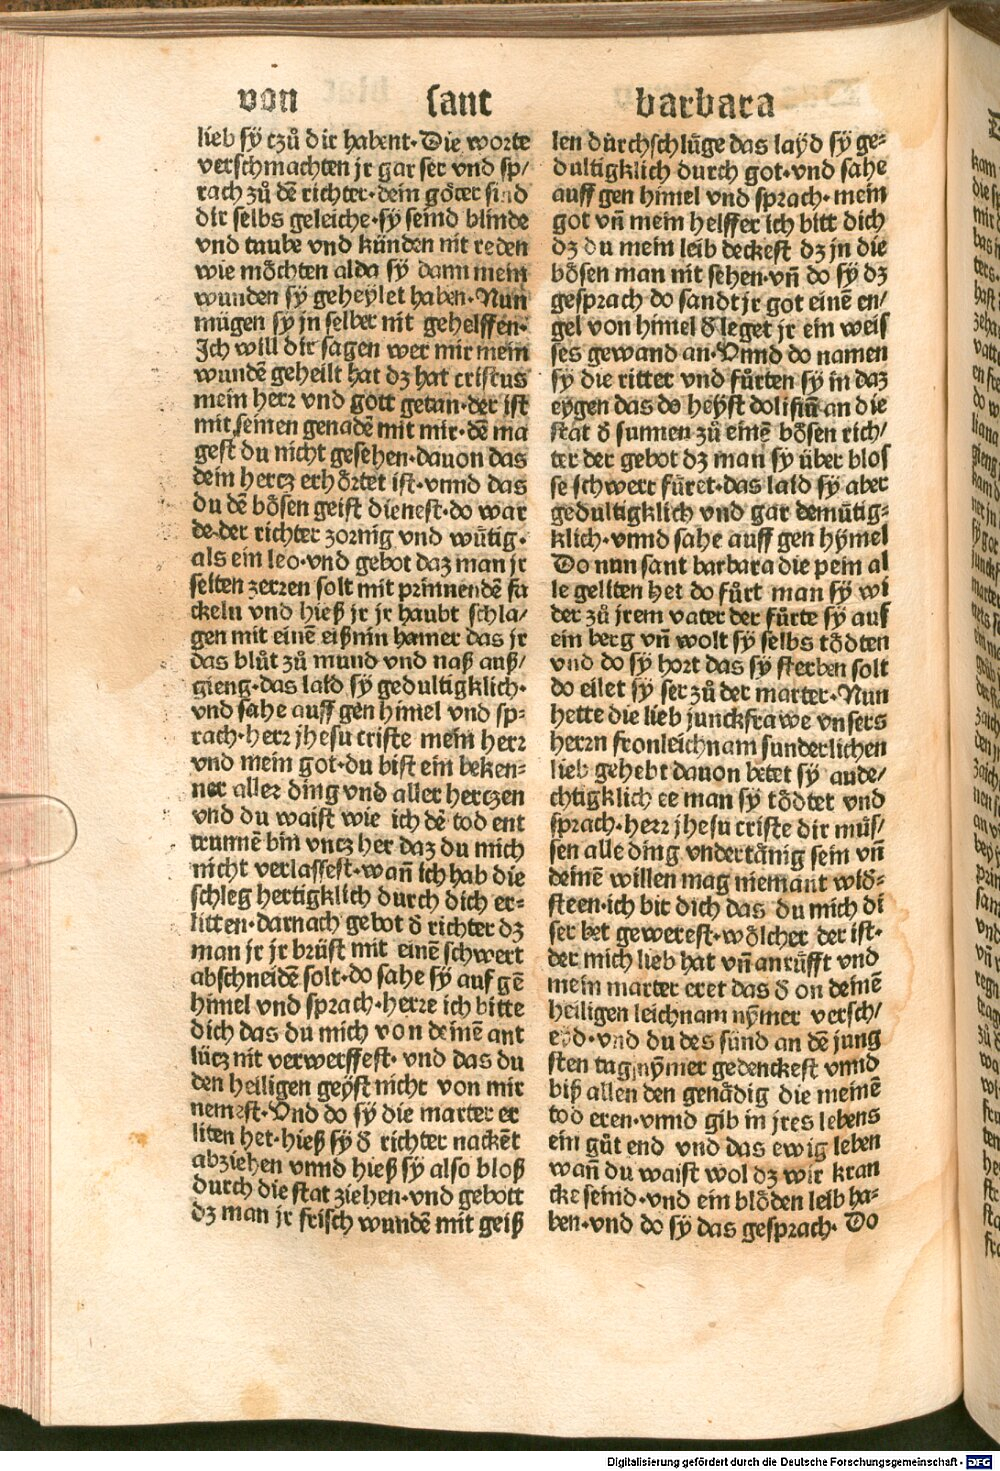 von sant barbara
lieb sÿ tzů dir habent·Die worte
verschmachten jr gar ser vnd sp/
rach zů dē richter·dein göter sind
dir selbs geleiche·sÿ seind blinde
vnd taube vnd künden nit reden
wie möchten alda sÿ dann mein
wunden sÿ geheylet haben·Nun
mügen sÿ jn selber nit gehelffen·
Ich will dir sagen wer mir mein
wundē geheilt hat dz hat cristus
mein herr vnd gott getan·der ist
mit seinen genadē mit mir·dē ma
gest du nicht gesehen·dauon das
dein hertz erhörtet ist·vnnd das
du dē bösen geist dienest·do war
de·der richter zornig vnd wütig·
als ein leo·vnd gebot daz man jr
seiten zerren solt mit prinnendē fa
ckeln vnd hieß jr jr haubt schla/
gen mit einē eißnin hamer das jr
das blůt zů mund vnd naß auß/
gieng·das laid sÿ gedultigklich·
vnd sahe auff gen himel vnd sp=
rach·herr jhesu criste mein herr
vnd mein got·du bist ein beken=
ner aller ding vnd aller hertzen
vnd du waist wie ich dē tod ent
trunnē bin vntz her daz du mich
nicht verlassest·wañ ich hab die
schleg hertigklich durch dich er=
litten·darnach gebot d̄ richter dz
man jr jr brüst mit einē schwert
abschneidē solt·do sahe sÿ auf gē
himel vnd sprach·herre ich bitte
dich das du mich von deinē ant
lütz nit verwerffest· vnd das du
den heiligen geÿst nicht von mir
nemest·Vnd do sÿ die marter er
liten het·hieß sÿ d̄ richter nackēt
abziehen vnnd hieß sÿ also bloß
durch die stat ziehen·vnd gebott
dz man jr frisch wundē mit geiß
len durchschlüge das laÿd sÿ ge=
dultigklich durch got·vnd sahe
auff gen himel vnd sprach·mein
got vñ mein helffer ich bitt dich
dz du mein leib deckest dz jn die
bösen man nit sehen·vñ do sÿ dz
gesprach do sandt jr got einē en/
gel von himel d̄ leget jr ein weis
ses gewand an·Vnnd do namen
sÿ die ritter vnd fůrten sÿ in daz
eÿgen das do heÿst dolisiū an die
stat d̄ sunnen zů einē bösen rich/
ter der gebot dz man sÿ über blos
se schwert fůret·das laid sÿ aber
gedultigklich vnd gar demütig=
klich·vnnd sahe auff gen hÿmel
Do nun sant barbara die pein al
le geliten het do fůrt man sÿ wi
der zů jrem vater der fůrte sÿ auf
ein berg vñ wolt sÿ selbs tödten
vnd do sÿ hort das sÿ sterben solt
do eilet sÿ ser zů der marter·Nun
hette die lieb junckfrawe vnsers
herrn fronleichnam sunderlichen
lieb gehebt dauon betet sÿ ande/
chtigklich ee man sÿ tödtet vnd
sprach·herr jhesu criste dir müs/
sen alle ding vndertänig sein vñ
deinē willen mag niemant wid̄=
steen·ich bit dich das du mich di
ser bet gewerest·wölcher der ist·
der mich lieb hat vñ anrüfft vnd
mein marter eret das d̄ on deinē
heiligen leichnam nÿmer versch/
eÿd·vnd du des sünd an dē jung
sten tag nÿmer gedenckest vnnd
biß allen den genädig die meinē
tod eren·vnnd gib in jres lebens
ein gůt end vnd das ewig leben
wañ du waist wol dz wir kran
cke seind·vnd ein blöden leib ha=
ben·vnd do sÿ das gesprach· Do
Digitalisierung gefördert durch die Deutsche Forschungsgemeinschaft - DFG